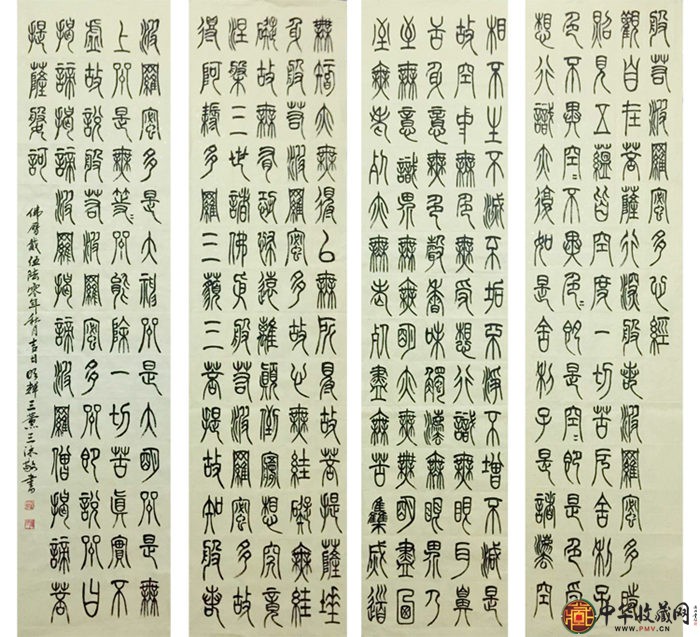 般若波羅蜜多心經
觀自在菩薩行深般若波羅蜜多時
照見五蘊皆空度一切苦厄舍利子
色不異空空不異色色即是空空即是色受
想行識亦復如是舍利子是諸法空
相不生不滅不垢不淨不增不減是
故空中無色無受想行識無眼耳鼻
舌身意無色聲香味觸法無眼界乃
至無意識界無無明亦無無明盡乃
至無老死亦無老死盡無苦集滅道
無智亦無得以無所得故菩提薩埵
依般若波羅蜜多故心無罣礙無罣
礙故無有恐怖遠離顛倒夢想究竟
涅槃三世諸佛依般若波羅蜜多故
得阿耨多羅三藐三菩提故知般若
波羅蜜多是大神咒是大明咒是無
上咒是無等等咒能除一切苦真實不
虛故說般若波羅蜜多咒即說咒曰
揭諦揭諦波羅揭諦波羅僧揭諦菩
提薩婆訶
佛曆貳伍陸零年秋月吉日明輝三薰三沐敬書
中华收藏网
WWW.PMV.CN